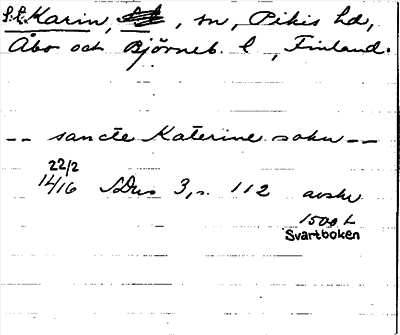 S:t Karin, sn, Pikis hd,
Åbo och Björneb. l, Finland.
-- sancte Katerine sokn --
22/2
1416 SDns 3, s. 112 avskr
1500 t
Svartboken